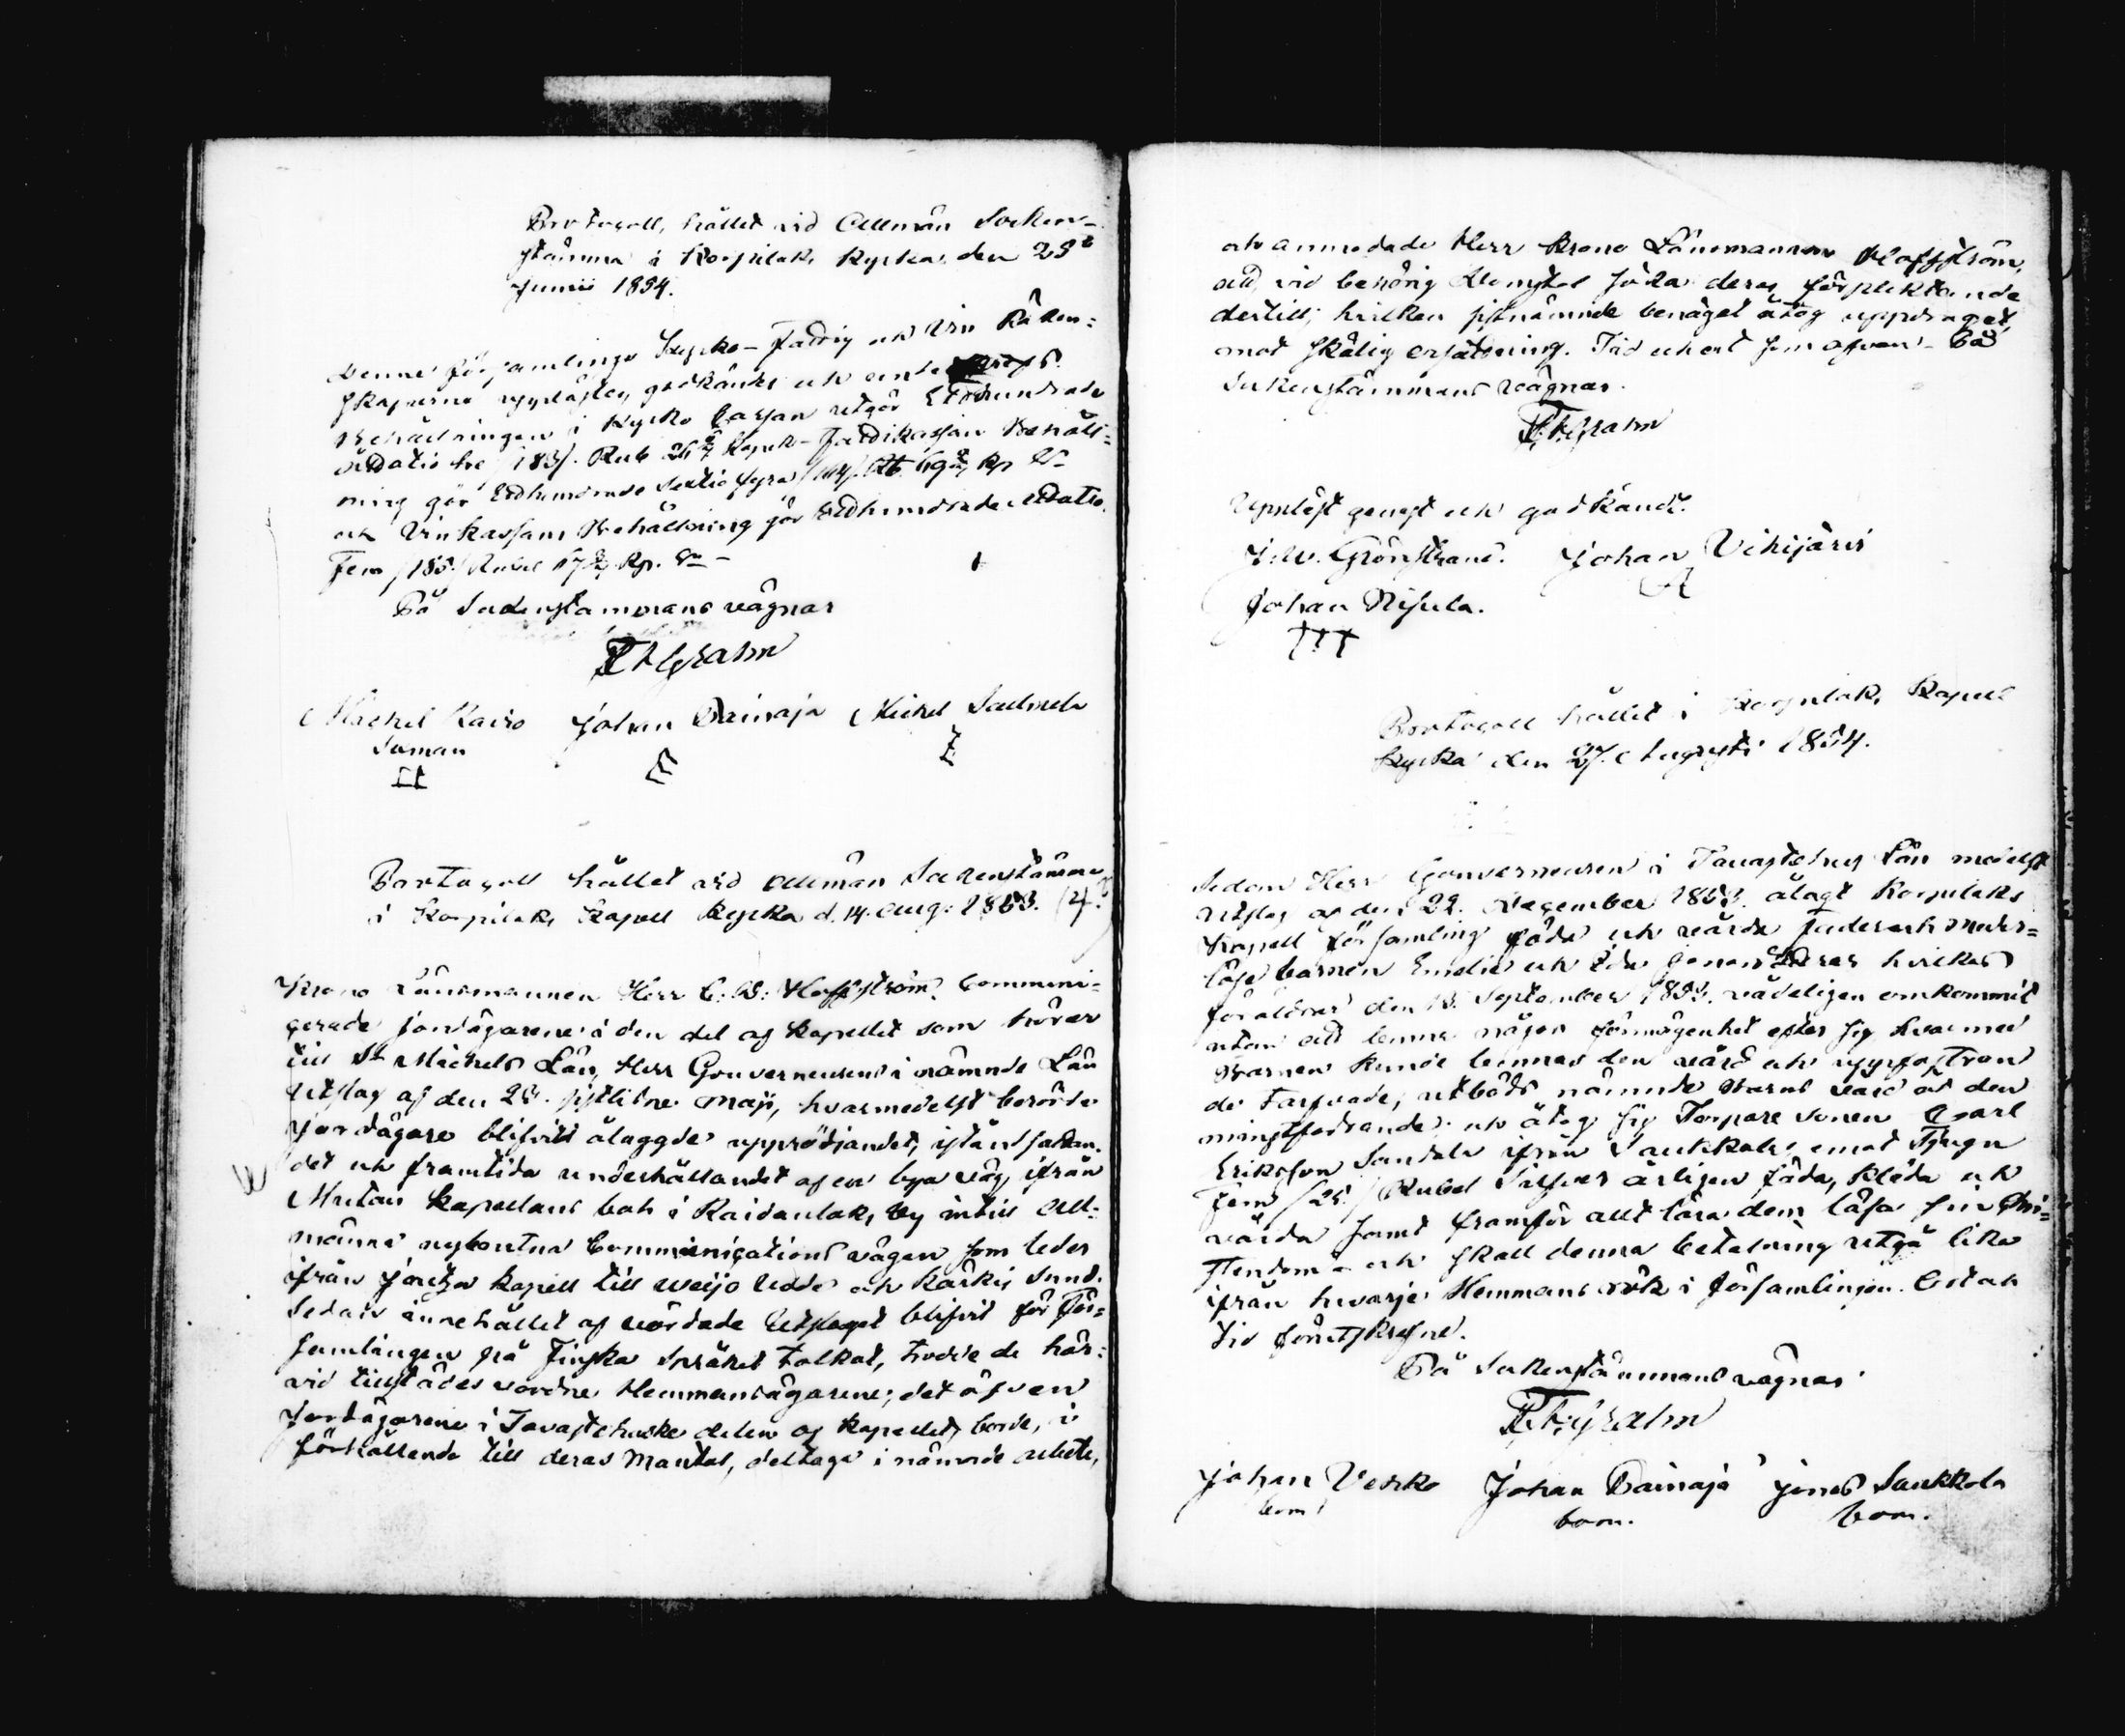 Protocoll, hållet vid Allmän Socken-
stämma i Korpilaks Kyrka den 25
Junii 1854.
Denne församlings Kyrko- Fattig och Vin Räken=
skaperne upplästes, godkändes och
Behållningen i Kyrko Cassan utgör Etthundrade
åttatio tre /183/. Rub. Kopek - Fattikassan Behåll=
ning gör Etthundrade Sextio fyra /164/ Rb. 69 Kp S
och Vinkassans Behållning gör Etthundrade åttatio
Fem /185/ Rubel 17 Kp. Sr -
På Sockenstämmans vägnar
Grahn
Michel Raiso Johan Painaja Michel Salmela
Juman
Protocoll hållet vid allmän Sockenstämma
i Korpilaks Kapell Kyrka d. 14. Aug: 1853. (4.)
Krono Länsmannen Herr C: W: Hoffström, communi=
cerade jordägarene å den del af kapellet som hörer
till St Michels Län, Herr Gouverneurens i nämnde Län
Utslag af den 25. sistlidne Maji, hvarmedelst berörde
jordägare blifvit ålaggde upprödjandet, iståndsättan-
det och framtida underhållandet af en by väg ifrån
Mutan kapellans bol i Raidanlaks by intill All=
männa nybrutna Communications vägen som leder
ifrån Joutsa kapell till Weijo Udde och Kärkis Sund.
Sedan innehållet af vördade Utslaget blifvit för För=
samlingen på Finska Språket tolkat, trodde de här=
vid tillstädes vordne Hemmansägarene; det äfven
Jordägarene i Tavastehuske delen af kapellet, borde, i
förhållande till deras Mantal, deltaga i nämnde arbete,
och anmodade Herr Krono Länsmannen Hoffström,
att vid behörig Domstol söka deras förpliktande
dertill; hvilken sistnämnde benäget åtog uppdraget,
mot skälig ersättning. Tid och ort som ofvan - På
Sockenstämmans vägnar.
Grahn
Uppläst genast och godkändt.
J. W. Grönstrand. Johan Vihijärvi
Johan Nisula.
Protocoll hållet i Korpilaks Kapell
Kyrka den 27. Augusti 1854.
Sedan Herr Gouverneuren i Tavastehus Län medelst
Utslag af den 22. December 1853. ålagt Korpilaks
Kapell församling föda och vårda fader och moder=
lösa barnen Emelie och Ida Jonas döttrar hvilkas
föräldrar den 13. September 1853. vådeligen omkommit
utan att lemna någon förmögenhet efter sig hvarmed
Barnen kunde lemnas den vård och uppfostran
de tarfvade; utböds nämnde Barns vård åt den
minstfodrande och åtog sig Torpare sonen Carl
Eriksson Sandala ifrån Saukkola emot Tjugu
fem /25/ Rubel Silfver årligen föda, kläda och
vårda samt framför allt lära dem läsa sin Chri=
stendom - och skall denna betalning utgå lika
ifrån hvarje Hemmans rök i församlingen. Ort och
tid förutskrefne.
På Sockenstämmans vägnar
Grahn
Johan Vesko Johan Painaja Jonas Saukkola
bom. bom. bom.